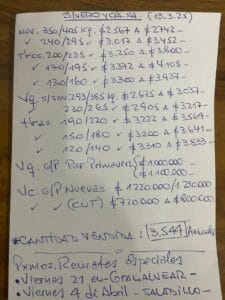 SINERGYCA. SA. (13.3.25)
Nov. 350/405 KG. $2.567 A $2742-
✓ 240/295 ✓ $3.017 A $3.452-
Tros. 200/235 ✓ $3.250 A $3.800-
✓ 170/195 ✓ $3.372 A $4.108-
✓ 130/160 ✓ $3.300 A $3.937-
Vq. S/SERV. 293/385 KG. $2.675 A $3.037-
✓ 230/265 ✓ $2905 A $3.217-
Tras. 190/220 ✓ $3222 A $3.569-
✓ 150/180 ✓ $3200 A $3.641-
✓ 120/140 ✓ $3.310 A $3.833-
Vq. G/P Par. Primavera $1.000.000-
$1.100.000-
Vc. G/P NUEVAS $1220.000/1.230.000
✓ ✓ (CUT) $720.000 A $800.000
*CANTIDAD VENDIDA: 3.544 Animales
Pxmos. Remates Especiales
• Viernes 21 en GRAL ALVEAR-
• Viernes 4 de Abril - SALADILLO-